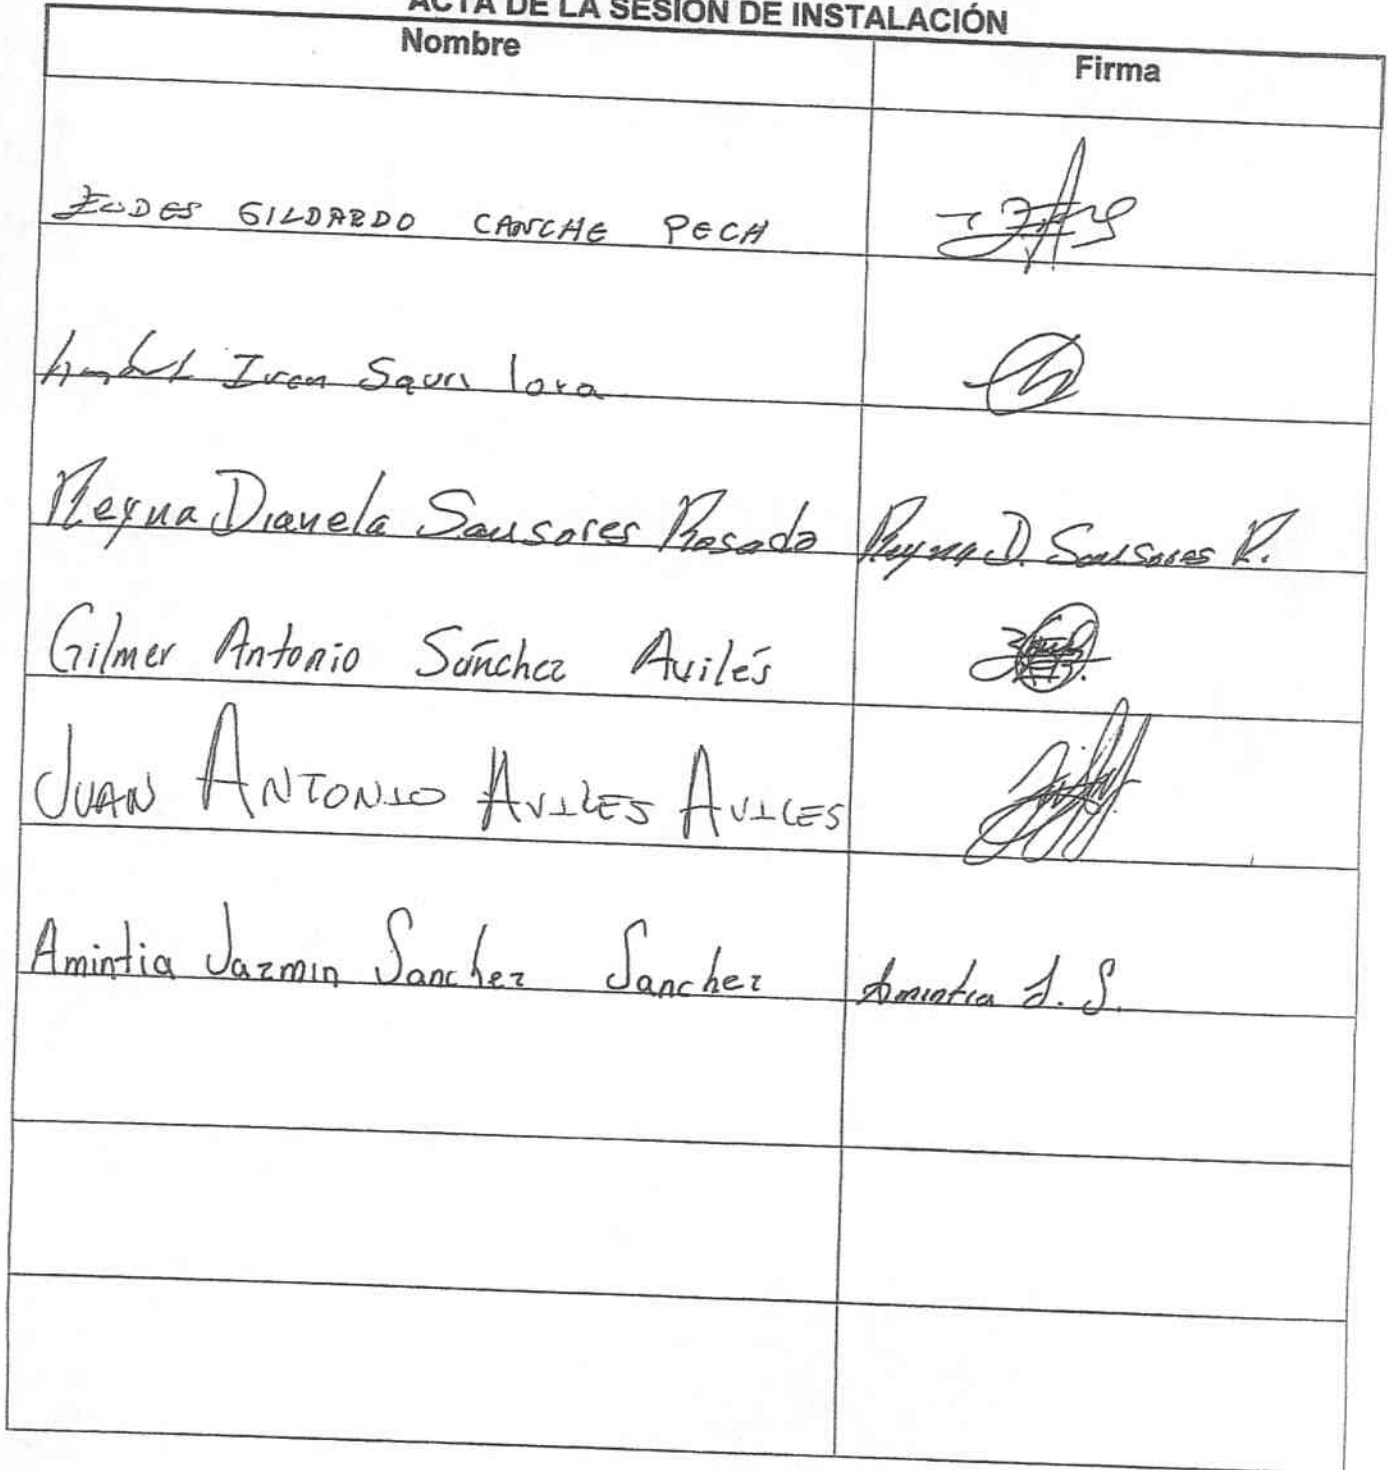 ACTA DE LA SESIÓN DE INSTALACIÓN
Nombre Firma
GILDARDO CANCHE PECH
Ivan Sauri lora
Reyna Dianela Sansores Rosado Reyna D. Sansores R.
Gilmer Antonio Sánchez Avilés
JUAN ANTONIO AVILES AVILES
Amintia Jazmin Sanchez Sanchez Amintia J. S.